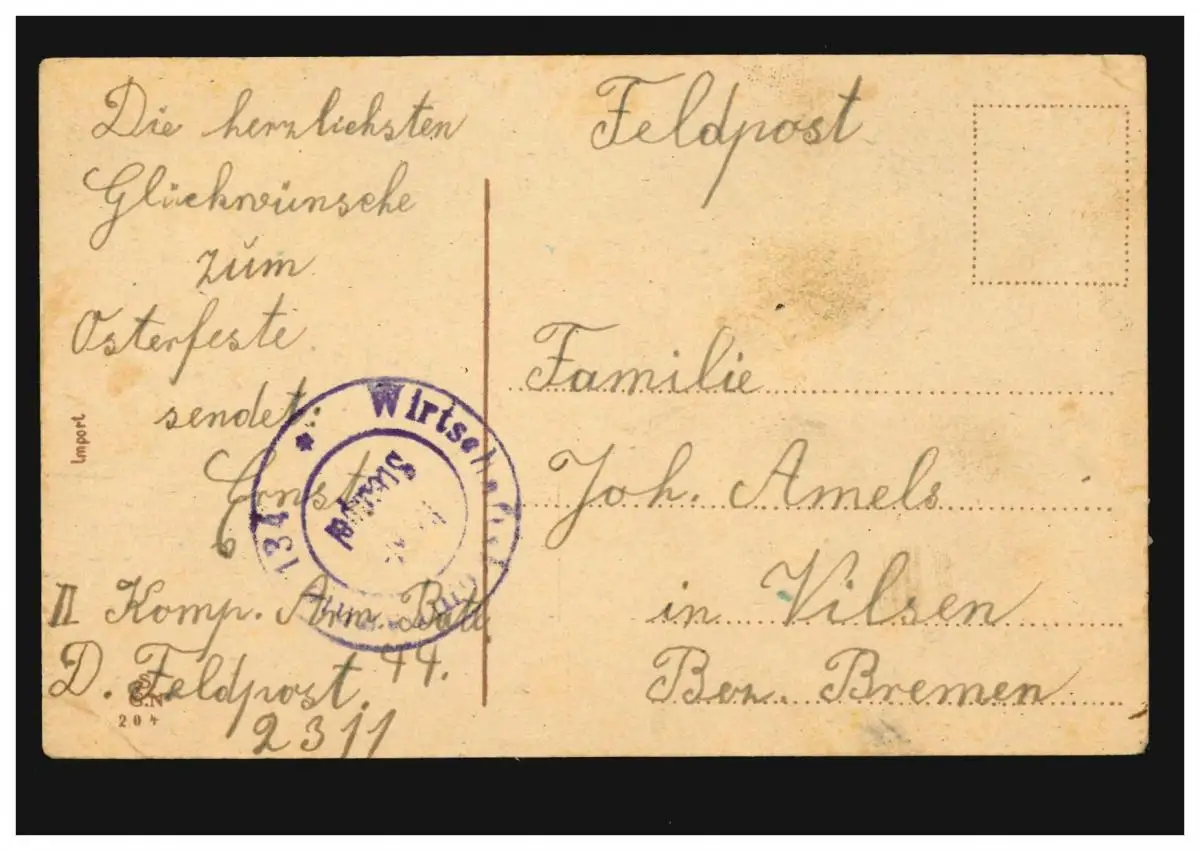 Die herzlichsten
Glückwünsche
zum
Osterfeste
sendet:
Ernst
II Komp. Arm. Batl.
44.
D. Feldpost.
2311
Feldpost
Familie
Joh. Amels
in Vilsen
Bez. Bremen
Import
S
G.N
204
* Wirtschafts
134